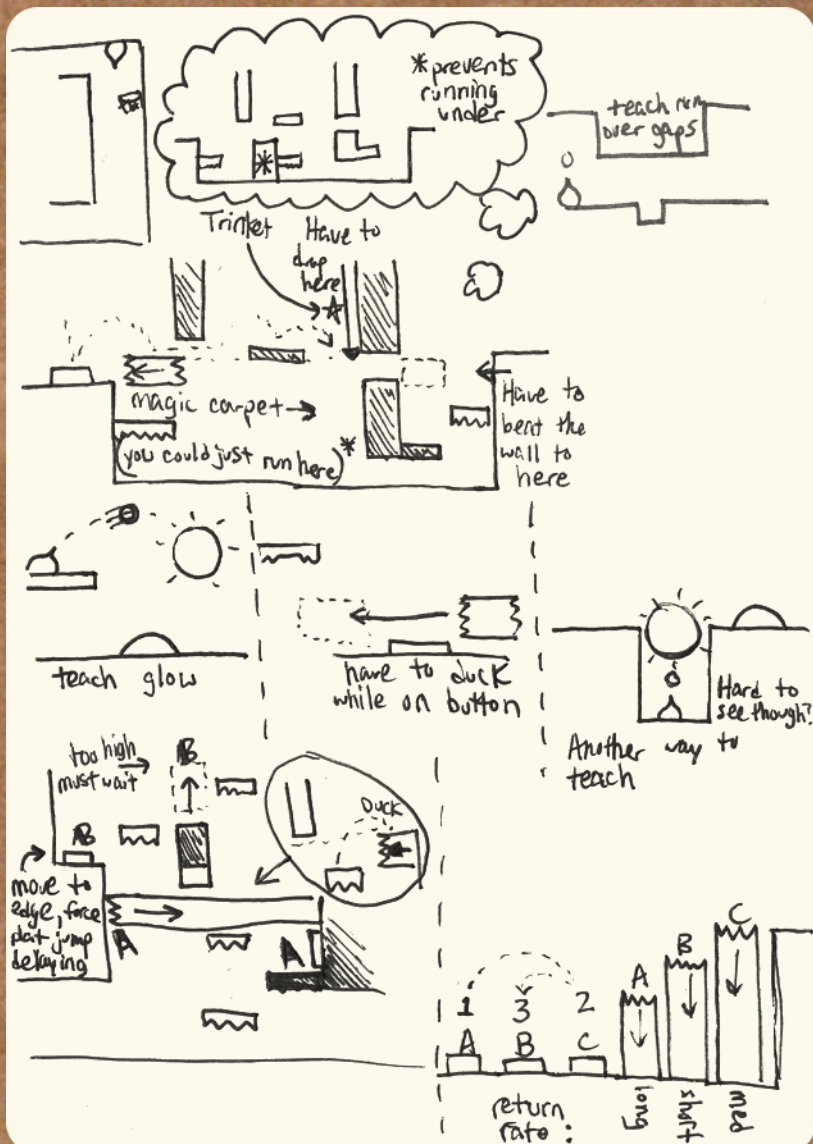 *prevents
running
under
teach run
over gaps
Trinket
Have to
drop
here
magic carpet
(you could just run here)*
Have to
beat the
wall to
here
teach glow
have to duck
while on button
Hard to
see though?
Another way to
teach
too high
must wait
B
AB
Duck
move to
edge, force
plat jump
delaying
A
A
1 3 2
A B C
A
B
C
return
rate:
long
short
med